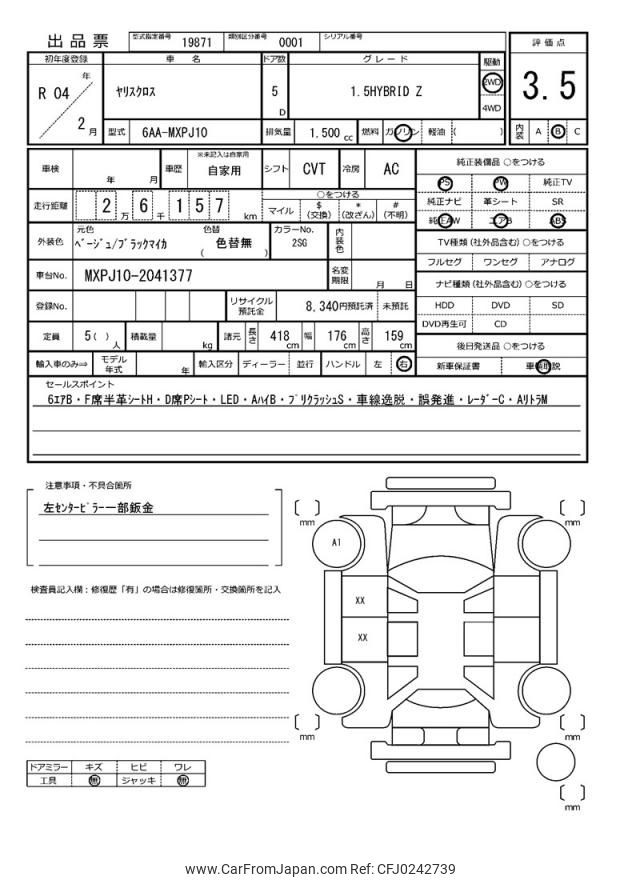 出品票
型式指定番号 19871 類別区分番号 0001 シリアル番号
評価点
3.5
内装 A B C
初年度登録 車名 ドア数 グレード 駆動
R 04 年 2 月
ヤリスクロス 5 D 1.5HYBRID Z 2WD 4WD
型式 6AA-MXPJ10 排気量 1.500 cc 燃料 ガソリン 軽油 ( )
車検 年 月 車歴 ※未記入は自家用 自家用 シフト CVT 冷房 AC
走行距離 2万6千157 km
○をつける
マイル $(交換) *(改ざん) #(不明)
外装色 元色 ベージュ/ブラックマイカ 色替 色替無 ( ) カラーNo. 2SG 内装色
車台No. MXPJ10-2041377 名変期限 月 日
登録No. リサイクル預託金 8,340円預託済 未預託
定員 5( )人 積載量 kg 諸元 長さ 418cm 幅 176cm 高さ 159cm
輸入車のみ⇨ モデル年式 年 輸入区分 ディーラー 並行 ハンドル 左 右
純正装備品 ○をつける
PS PW 純正TV
純正ナビ 革シート SR
純正AW エアB ABS
TV種類(社外品含む)○をつける
フルセグ ワンセグ アナログ
ナビ種類(社外品含む)○をつける
HDD DVD SD
DVD再生可 CD
後日発送品 ○をつける
新車保証書 車輌取説
セールスポイント
6エアB・F席半革シートH・D席Pシート・LED・AハイB・プリクラッシュS・車線逸脱・誤発進・レーダーC・AリトラM
注意事項・不具合箇所
左センターピラー一部鈑金
検査員記入欄:修復歴「有」の場合は修復箇所・交換箇所を記入
ドアミラー キズ ヒビ ワレ
工具 無 ジャッキ 無
[ ] mm [ ] mm
A1
XX
XX
[ ] mm [ ] mm
[ ] mm
www.CarFromJapan.com Ref: CFJ0242739